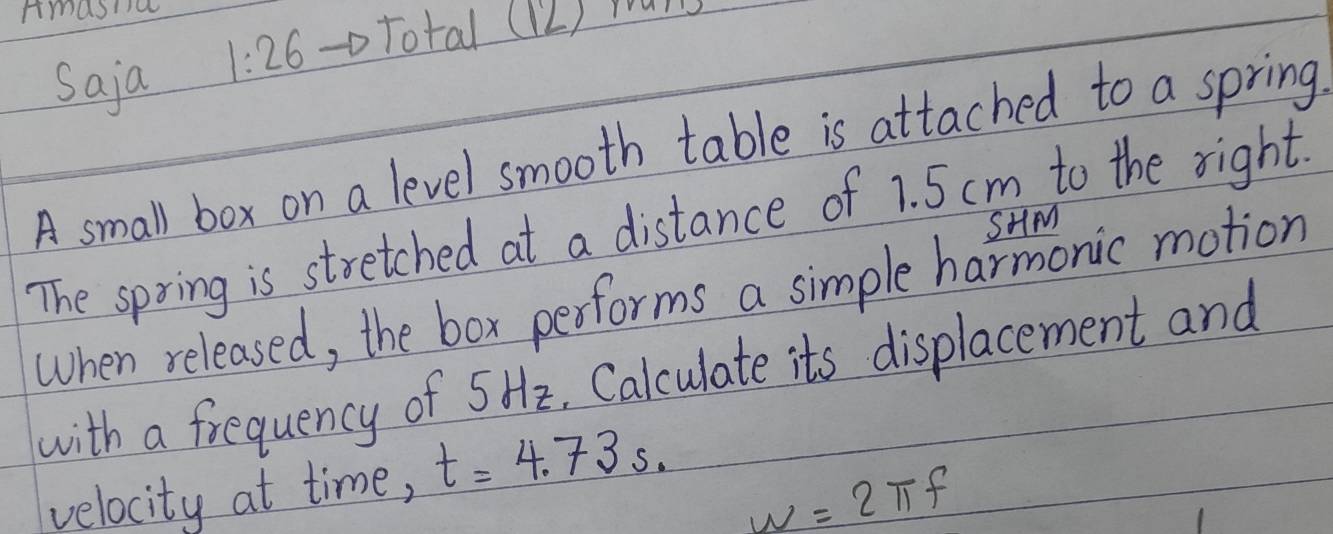 Amasha
Saja 1:26 → Total (12)
A small box on a level smooth table is attached to a spring.
The spring is stretched at a distance of 1.5 cm to the right.
SHM
When released, the box performs a simple harmonic motion
with a frequency of 5 Hz. Calculate its displacement and
velocity at time, t = 4.73 s.
w = 2πf